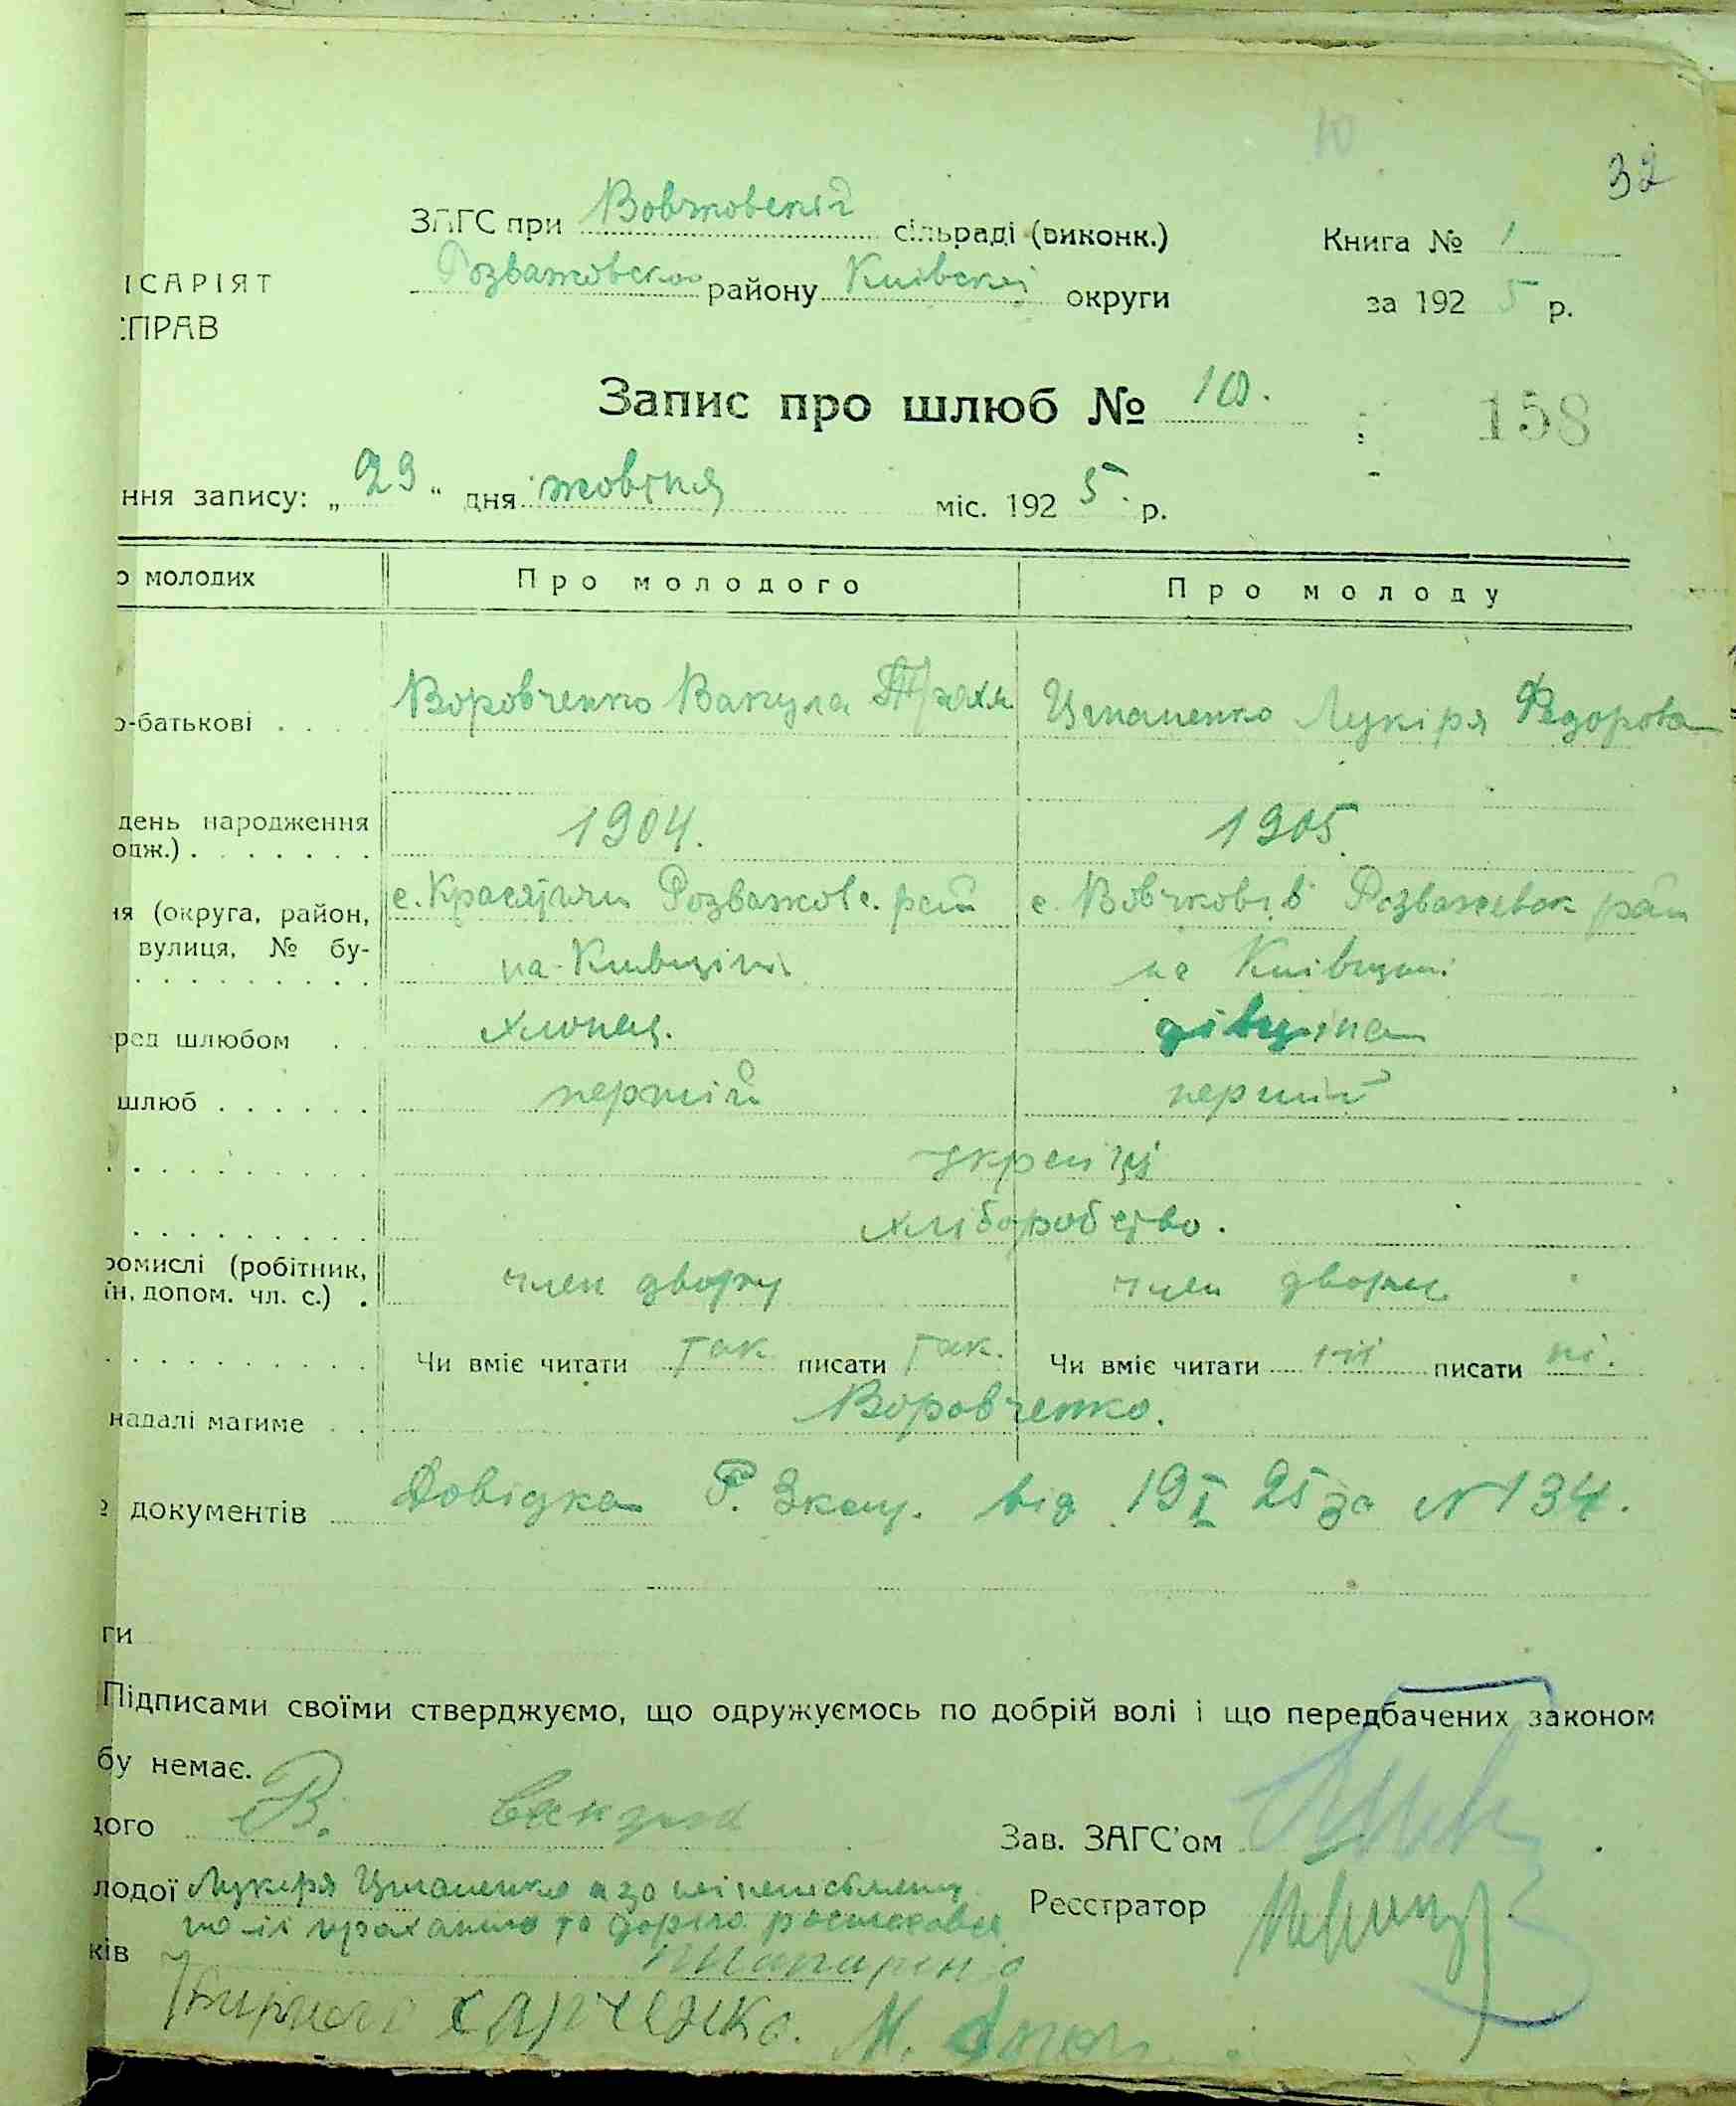 32
ЗАГС при Вовчковській сільраді (виконк.) Книга № 1
ІСАРІЯТ Розважовско району Київскої округи за 192 5 р.
СПРАВ
Запис про шлюб № 10.
158
ння запису: „ 29 " дня жовтня міс. 192 5. р.
о молодих Про молодого Про молоду
о-батькові . . . Воровченко Вакула Лукіря Федорова
день народження 1904. 1905
одж.) . . . . . . .
ня (округа, район, с. Красятичи Розважовс. рай с. Вовчков Розважевск рай
вулиця, № бу- на Київщині на Київщині
ред шлюбом . . хлопец. дівчина
шлюб . . . . . . перший перший
українці
хліборобство.
ромислі (робітник, член двору член двору
ін, допом. чл. с.) .
Чи вміє читати так писати так. Чи вміє читати ні писати ні.
надалі матиме . . Воровченко.
документів Довідка Р. від 19 I 25 за № 134.
ги
Підписами своїми стверджуємо, що одружуємось по добрій волі і що передбачених законом
бу немає.
дого В. Вакула Зав. ЗАГС'ом
лодої Лукіря а за неі неписьмену Реєстратор
по її проханню та
ків
Харченко. М.